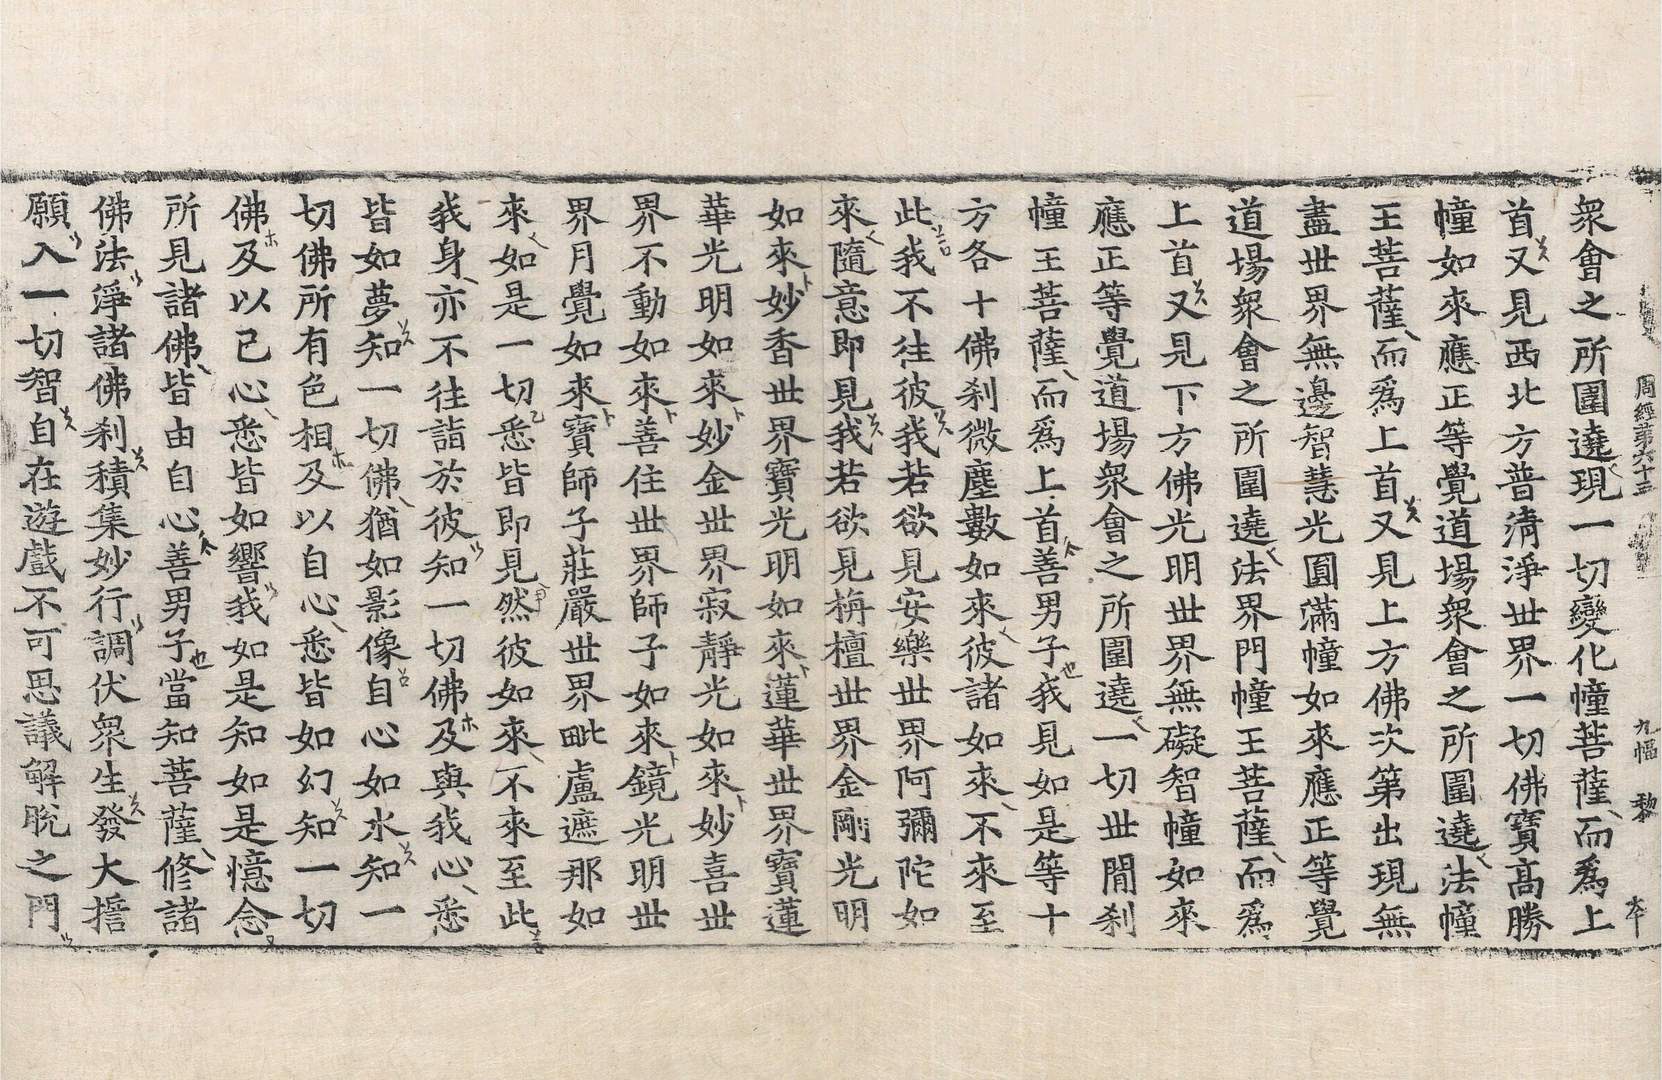 周經第六十三 九幅 黎
衆會之所圍遶現一切變化幢菩薩而爲上
首又見西北方普清淨世界一切佛寶高勝
幢如來應正等覺道場衆會之所圍遶法幢
王菩薩而爲上首又見上方佛次第出現無
盡世界無邊智慧光圓滿幢如來應正等覺
道場衆會之所圍遶法界門幢王菩薩而爲
上首又見下方佛光明世界無礙智幢如來
應正等覺道場衆會之所圍遶一切世間刹
幢王菩薩而爲上首善男子我見如是等十
方各十佛刹微塵數如來彼諸如來不來至
此我不往彼我若欲見安樂世界阿彌陀如
來隨意即見我若欲見栴檀世界金剛光明
如來妙香世界寶光明如來蓮華世界寶蓮
華光明如來妙金世界寂靜光如來妙喜世
界不動如來善住世界師子如來鏡光明世
界月覺如來寶師子莊嚴世界毗盧遮那如
來如是一切悉皆即見然彼如來不來至此
我身亦不往詣於彼知一切佛及與我心悉
皆如夢知一切佛猶如影像自心如水知一
切佛所有色相及以自心悉皆如幻知一切
佛及以己心悉皆如響我如是知如是憶念
所見諸佛皆由自心善男子當知菩薩修諸
佛法淨諸佛刹積集妙行調伏衆生發大誓
願入一切智自在遊戲不可思議解脫之門